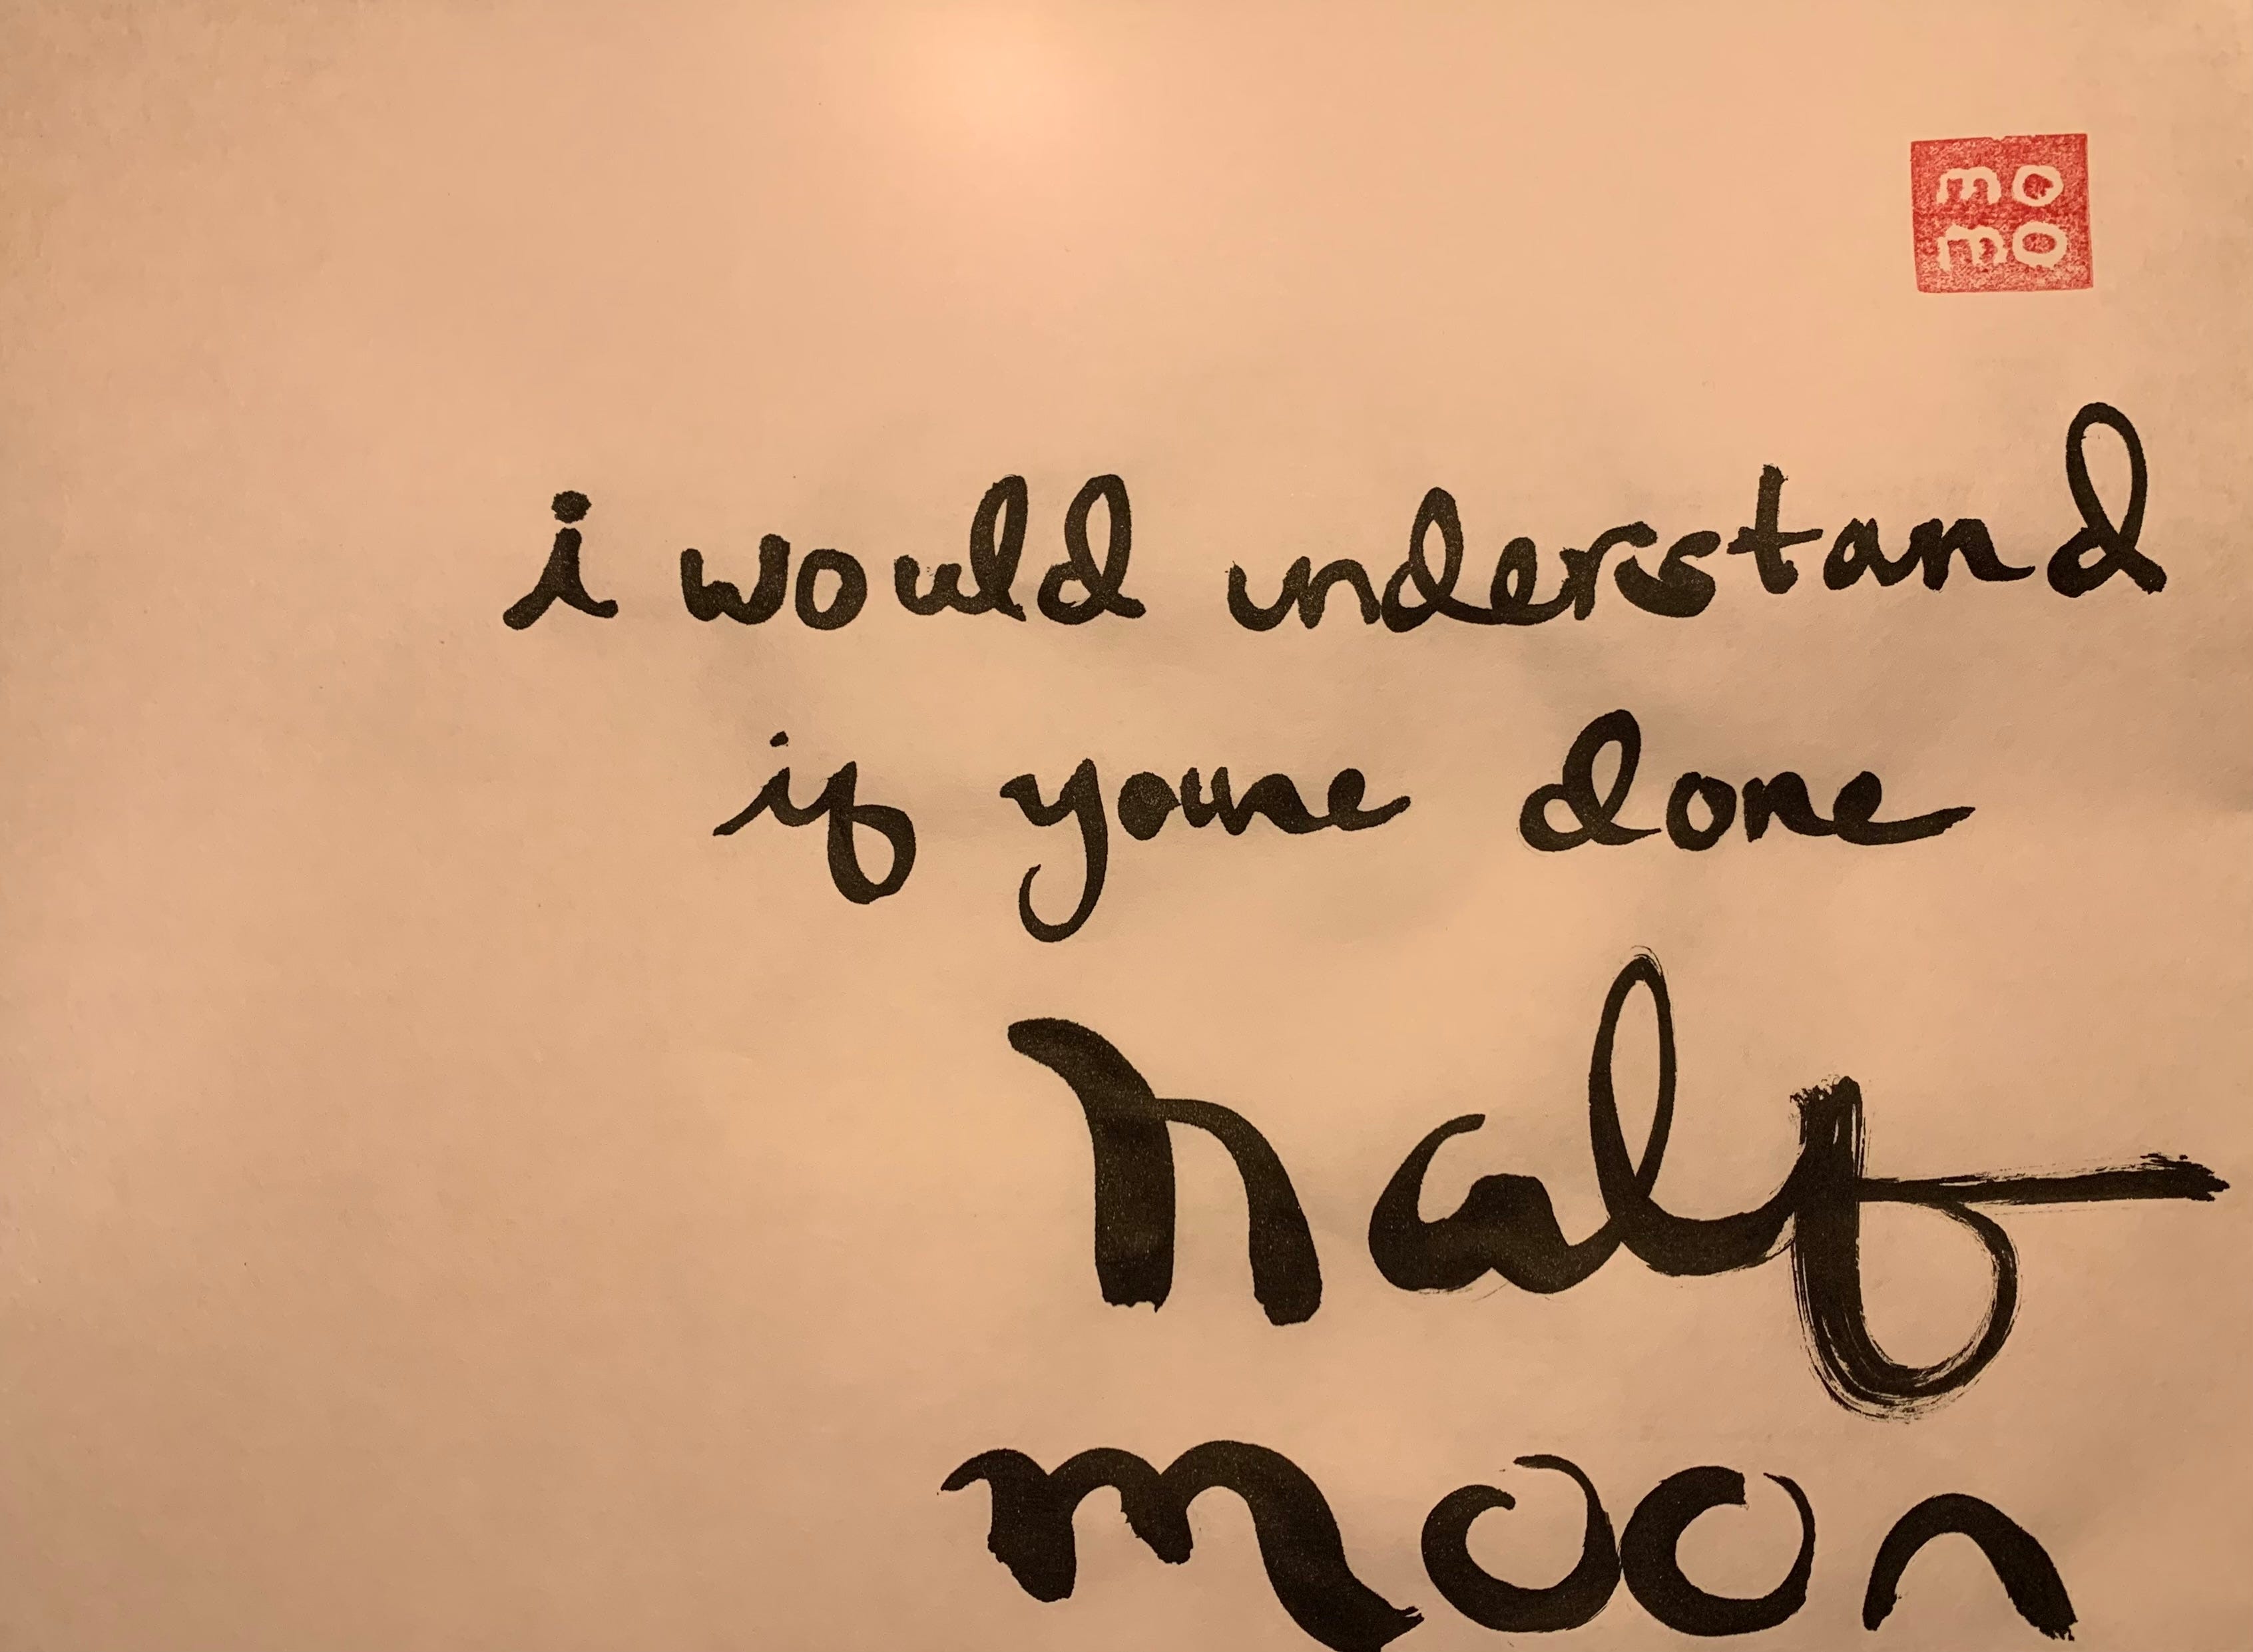 mo
mo
i would understand
if youre done
half
moon